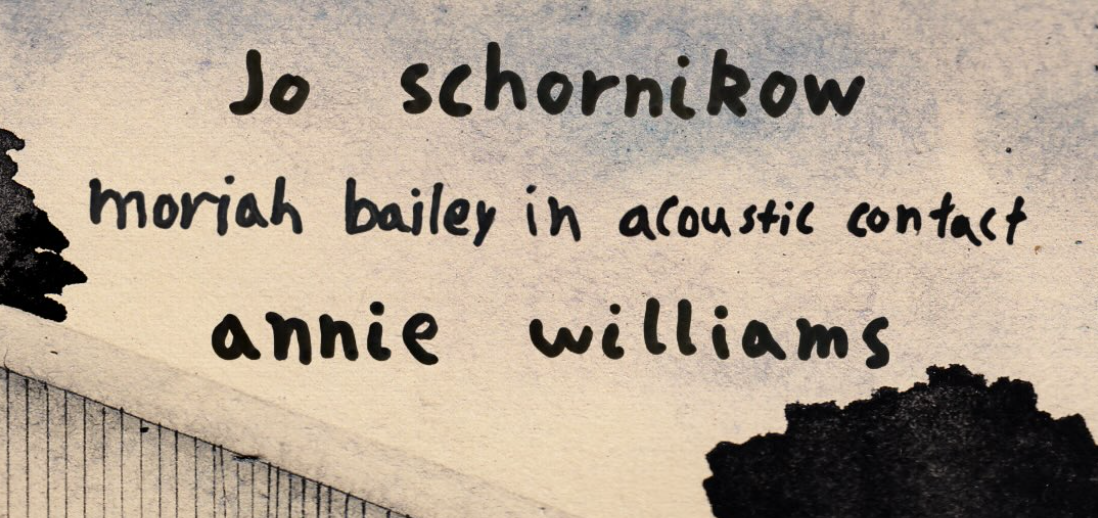 Jo schornikow
moriah bailey in acoustic contact
annie williams